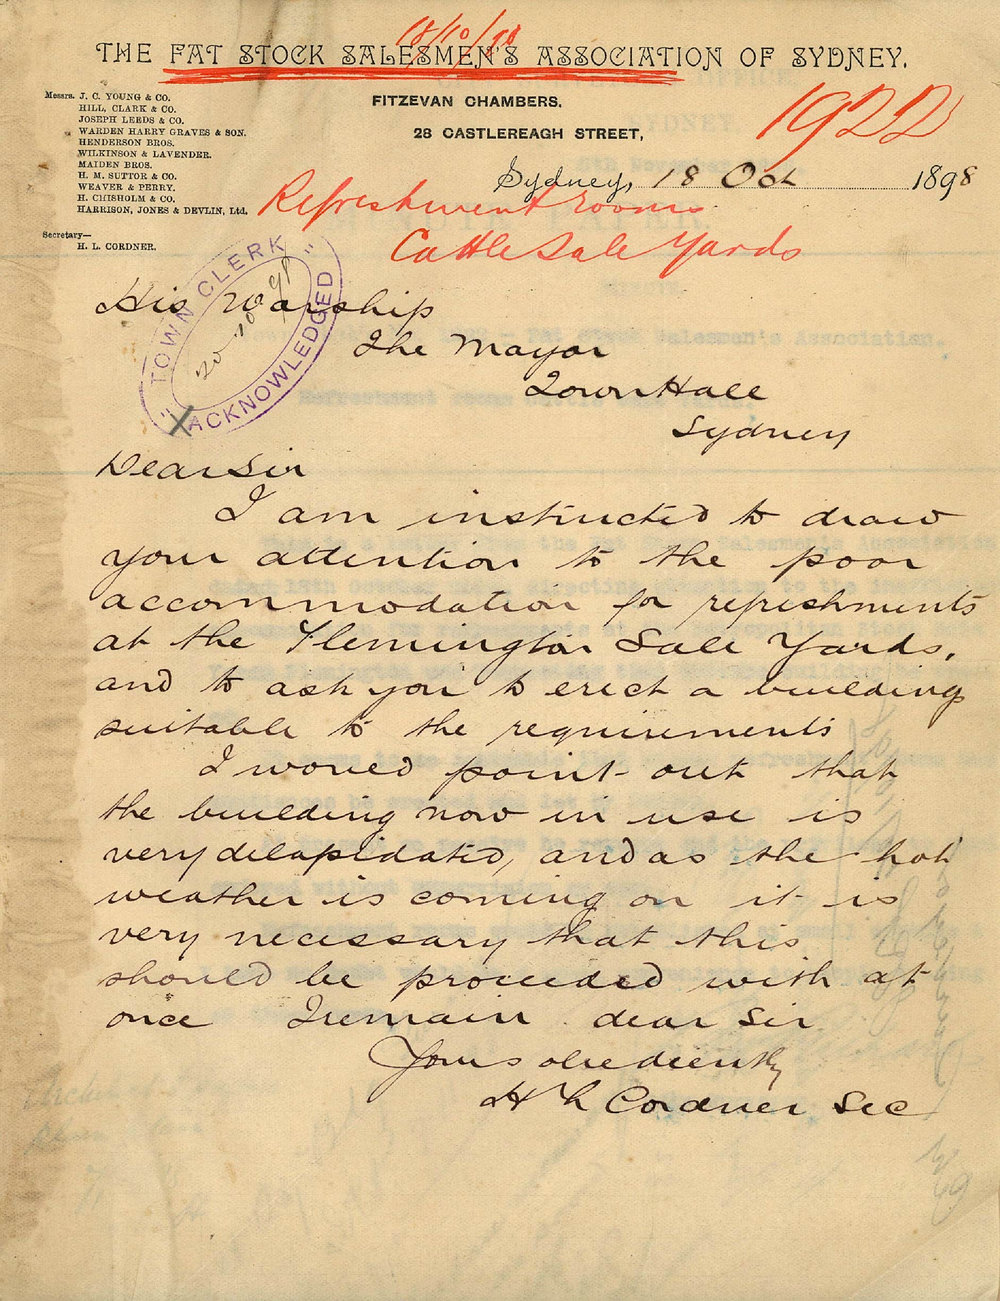 18/10/98
THE FAT STOCK SALESMEN'S ASSOCIATION OF SYDNEY.
Messrs. J. C. YOUNG & CO.
HILL, CLARK & CO.
JOSEPH LEEDS & CO.
WARDEN HARRY GRAVES & SON.
HENDERSON BROS.
WILKINSON & LAVENDER.
MAIDEN BROS.
H. M. SUTTOR & CO.
WEAVER & PERRY.
H. CHISHOLM & CO.
HARRISON, JONES & DEVLIN, Ltd.
Secretary—
H. L. CORDNER.
FITZEVAN CHAMBERS.
28 CASTLEREAGH STREET,
1922
Sydney, 18 Oct 1898
Refreshment rooms
Cattle Sale Yards
"TOWN CLERK"
20-10-98
ACKNOWLEDGED
His Worship
The Mayor
Town Hall
Sydney
Dear Sir
I am instructed to draw
your attention to the poor
accommodation for refreshments
at the Flemington Sale Yards,
and to ask you to erect a building
suitable to the requirements
I would point-out that
the building now in use is
very delapidated, and as the hot
weather is coming on it is
very necessary that this
should be proceeded with at
once I remain dear Sir
Yours obediently
H L Cordner Sec